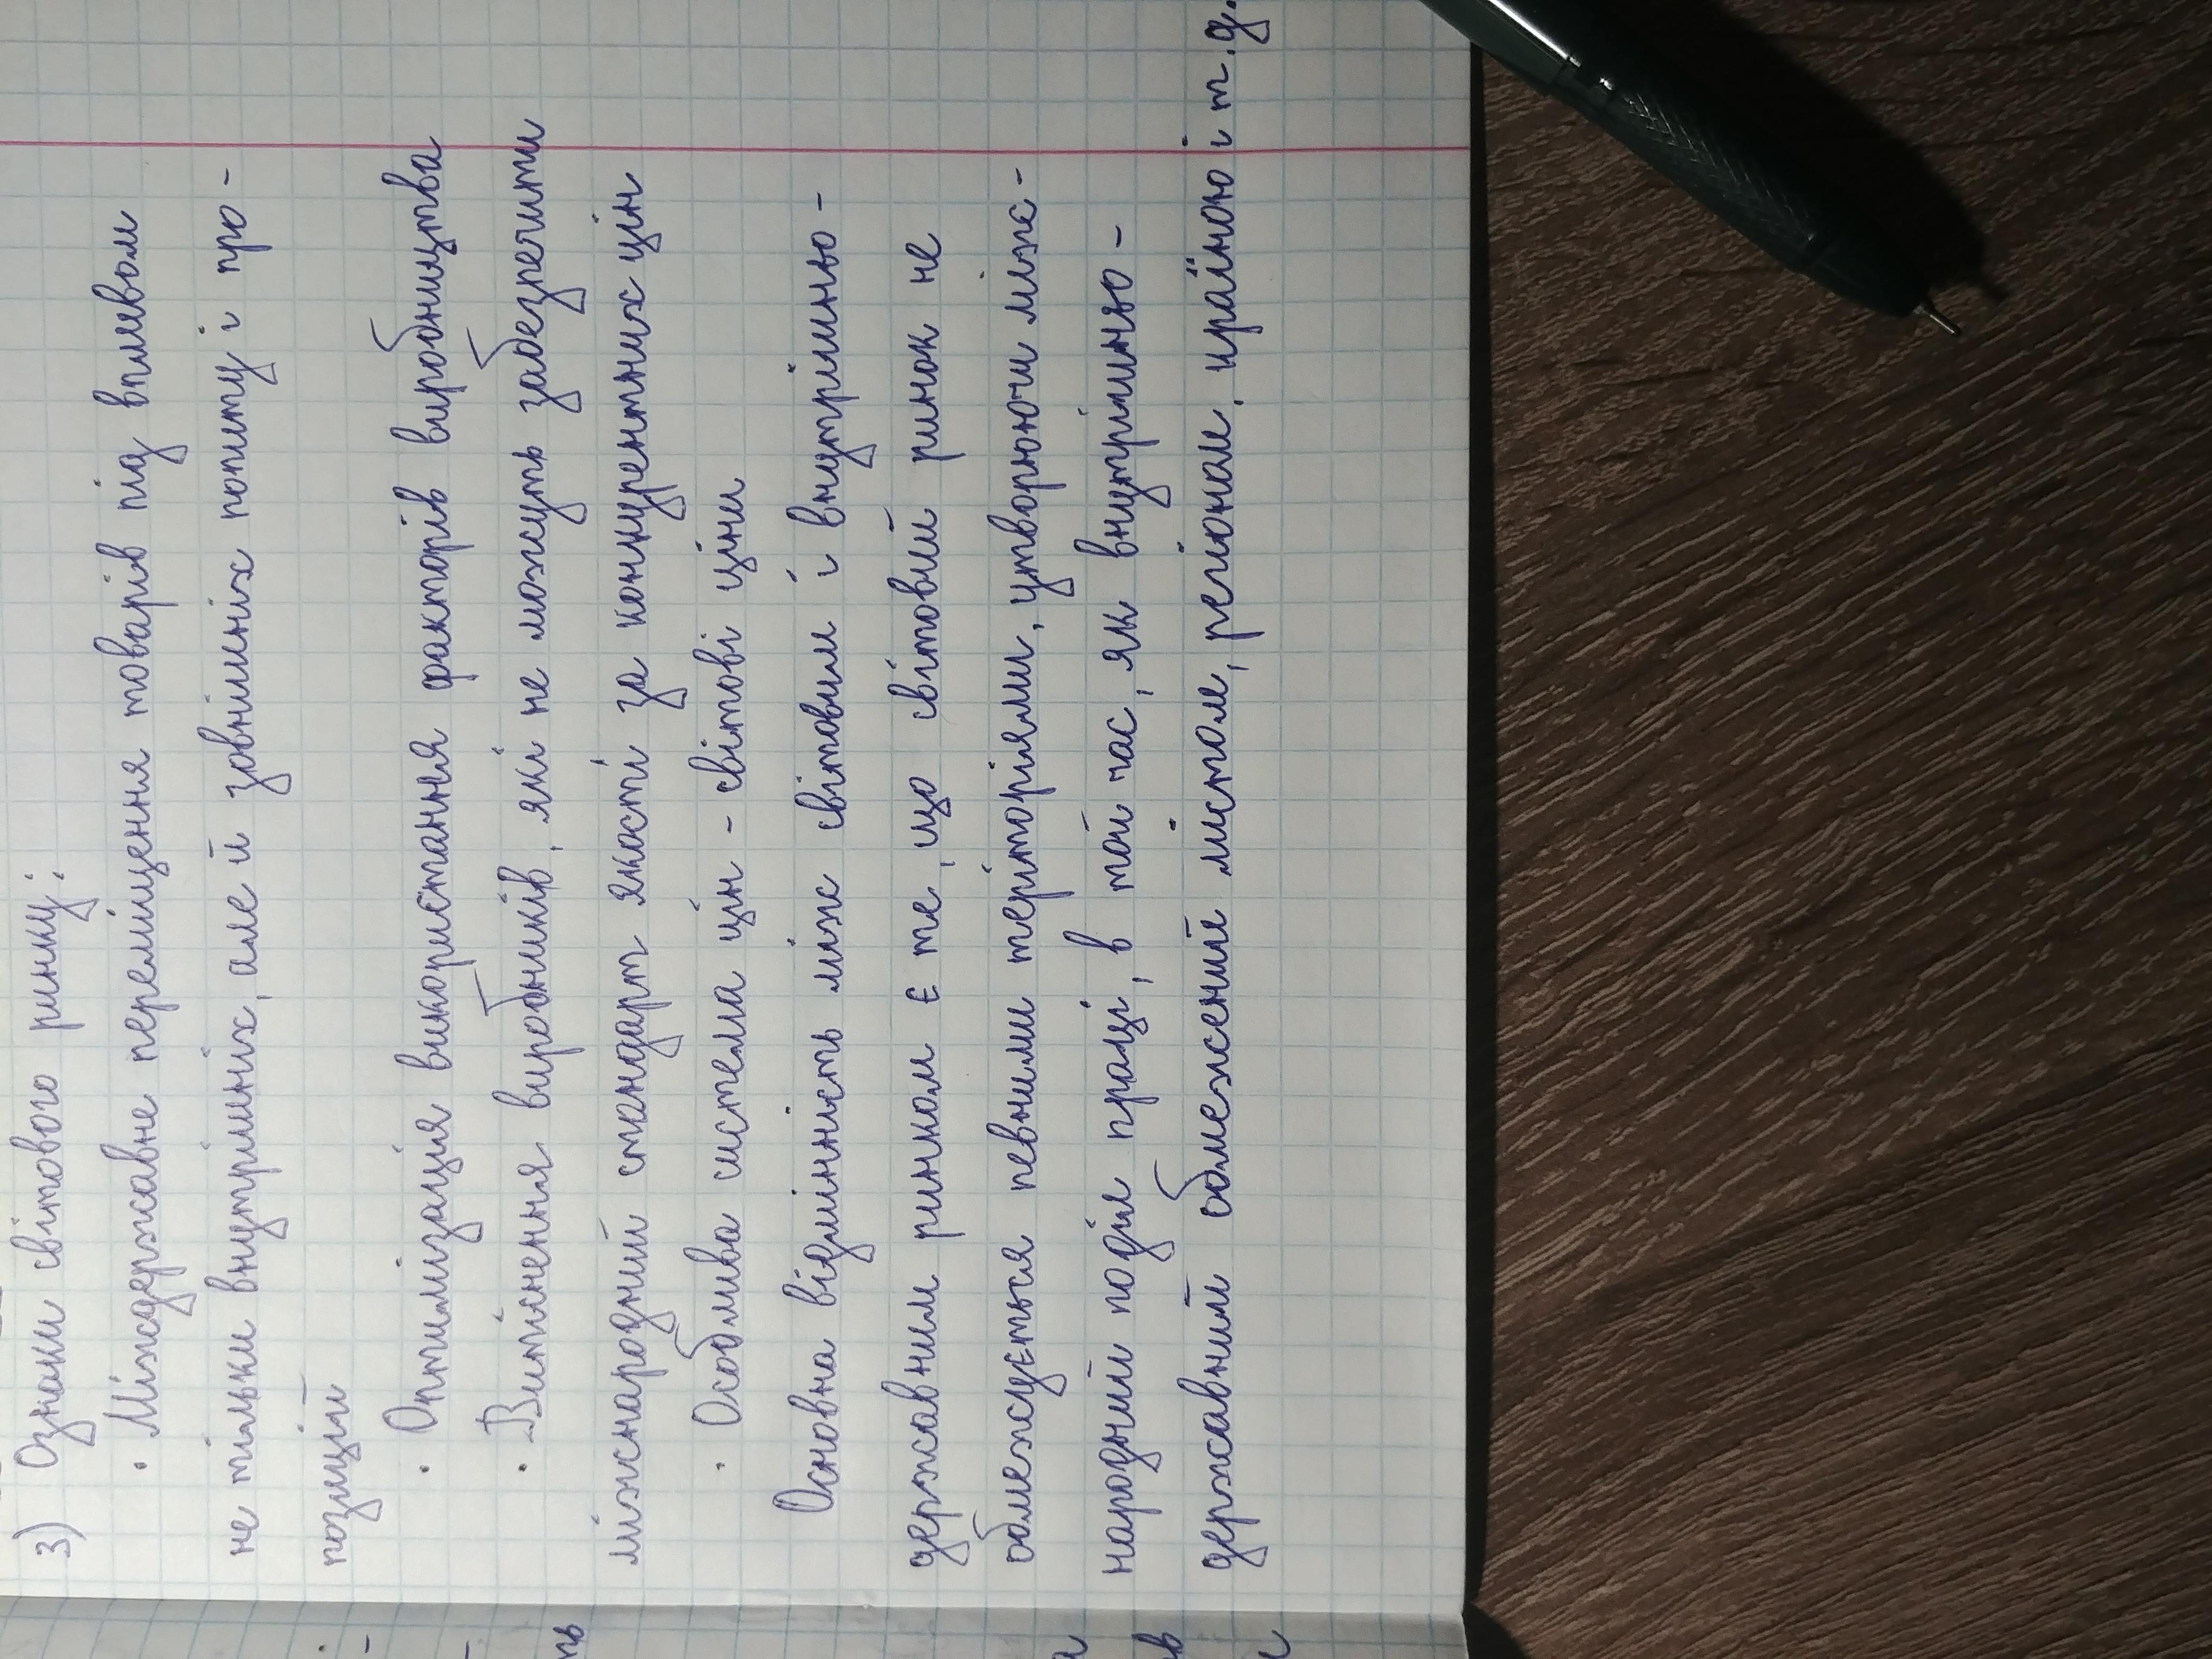 3) Ознаки світового ринку:
• Міждержавне переміщення товарів під впливом
не тільки внутрішніх, але й зовнішніх попиту і про-
позиції
• Оптимізація використання факторів виробництва
• Витіснення виробників, які не можуть забезпечити
міжнародний стандарт якості за конкурентних цін
• Особлива система цін - світові ціни
Основна відмінність між світовим і внутрішньо-
державним ринком є те, що світовий ринок не
обмежується певними теріторіями, утворюючи між-
народний поділ праці, в той час, як внутрішньо-
державний обмежений містом, регіоном, країною і т.д.